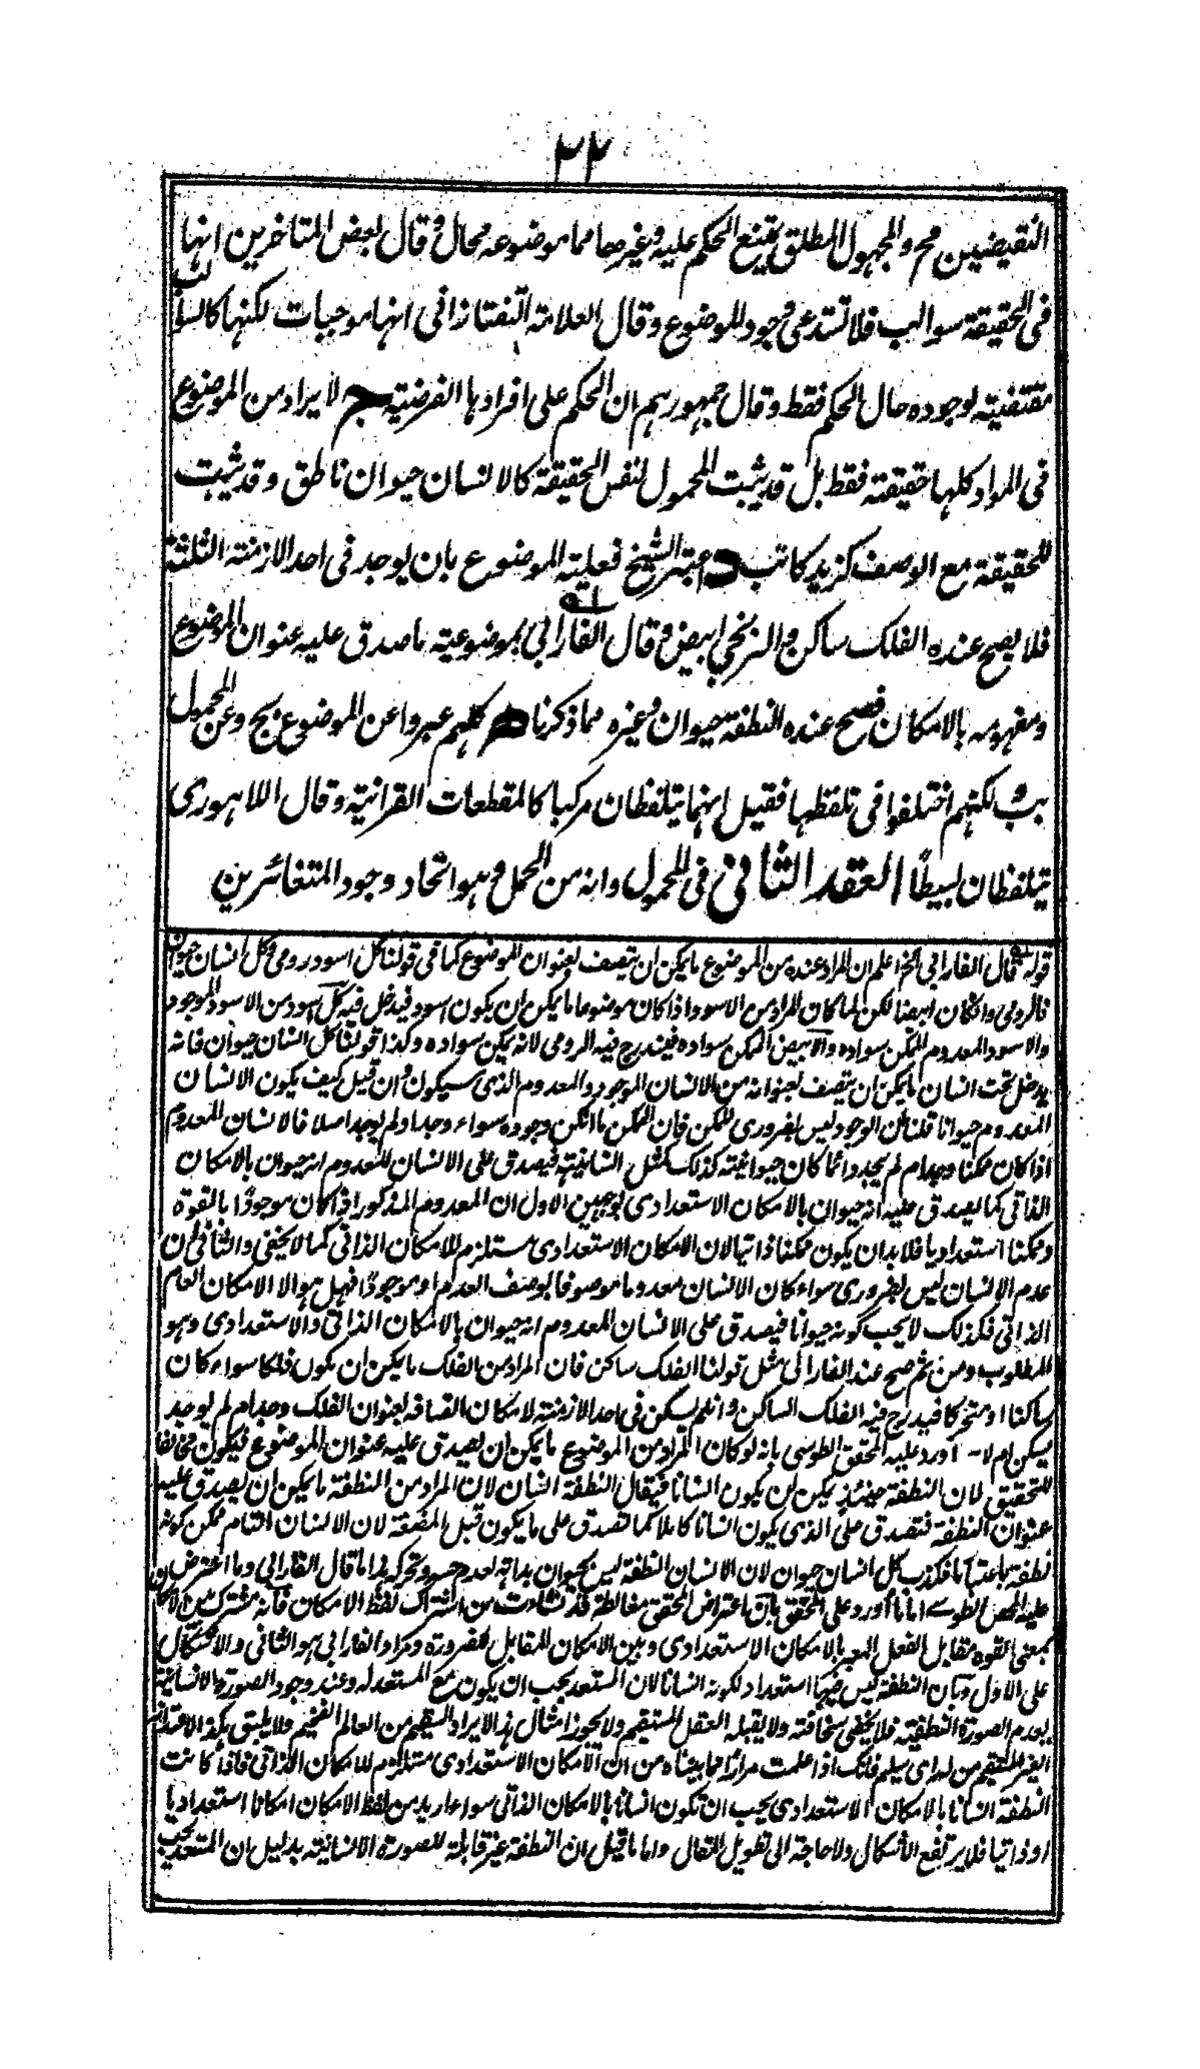 ٢٢
النقيضين مح والمجهول المطلق يمتنع الحكم عليه وغيرها مما موضوعه محال و قال بعض المتاخرين انها
فى الحقيقة سوالب فلا تستدعى وجود الموضوع وقال العلامة التفتازانى انها موجبات لكنها كالسوالب
مقتضية لوجوده حال الحكم فقط وقال جمهورهم ان الحكم على افرادها الفرضية ج لا يراد من الموضوع
فى المواد كلها حقيقته فقط بل قد يثبت المحمول لنفس الحقيقة كالانسان حيوان ناطق وقد يثبت
للحقيقة مع الوصف كزيد كاتب د اعتبر الشيخ فعلية الموضوع بان يوجد فى احد الازمنة الثلثة
فلا يصح عنده الفلك ساكن و الزنجى ابيض و قال الفارابى بموضوعية ما صدق عليه عنوان الموضوع
ومفهومه بالامكان فصح عنده النطفة حيوان وغيره مما ذكرنا ه كلهم عبروا عن الموضوع بج وعن المحمول
بب لكنهم اختلفوا فى تلفظها فقيل انهما يتلفظان مركبا كالمقطعات القرانية وقال اللاهورى
يتلفظان بسيطًا العقد الثانى فى المحمول وانه من الحمل و هو اتحاد وجود المتغائرين
قوله قال الفارابى الخ اعلم ان المراد عنده من الموضوع ما يمكن ان يتصف بعنوان الموضوع كما فى قولنا كل اسود رومى وكل انسان حيوان
فالرومى وان كان ابيضا لكن لما كان المراد من الاسود اذا كان موضوعا ما يمكن ان يكون اسود فيدخل فيه كل اسود من الاسود الموجود
والاسود المعدوم الممكن سواده والابيض الممكن سواده فيندرج فيه الرومى لانه يمكن سواده وكذا قولنا كل انسان حيوان فانه
يدخل تحت انسان ما يمكن ان يتصف بعنوانه من الانسان الموجود والمعدوم الذى سيكون وان قيل كيف يكون الانسان
المعدوم حيوانا قلنا ان الوجود ليس بضرورى للممكن فان الممكن ما امكن وجوده سواء وجد او لم يوجد اصلا فالانسان المعدوم
اذا كان ممكنا وجد ام لم يوجد وانما كان حيوانيته كذلك كمثل انسانيته فيصدق على الانسان المعدوم انه حيوان بالامكان
الذاتى كما يصدق عليه انه حيوان بالامكان الاستعدادى لوجهين الاول ان المعدوم المذكور اذا كان موجودًا بالقوة
وممكنا استعداديا فلا بد ان يكون ممكنا ذاتيا لان الامكان الاستعدادى مستلزم للامكان الذاتى كما لا يخفى والثانى ان
عدم الانسان ليس بضرورى سواء كان الانسان معدوما موصوفا بوصف العدم او موجودًا فهل هو الا الامكان العام
الذاتى فكذلك لا يجب كونه حيوانا فيصدق على الانسان المعدوم انه حيوان بالامكان الذاتى والاستعدادى وهو
المطلوب ومن ثم صح عند الفارابى مثل قولنا الفلك ساكن فان المراد من الفلك ما يمكن ان يكون فلكا سواء كان
ساكنا او متحركا فيدرج فيه الفلك الساكن وان لم يسكن فى احد الازمنة لامكان اتصافه بعنوان الفلك وجد ام لم يوجد
يسكن ام لا۔ اورد عليه المحقق الطوسى بانه لو كان المراد من الموضوع ما يمكن ان يصدق عليه عنوان الموضوع فيكون مخالفا
للتحقيق لان النطفة حينئذ يمكن ان يكون انسانا فيقال النطفة انسان لان المراد من النطفة ما يمكن ان يصدق عليه
عنوان النطفة فتصدق على الذى يكون انسانا كاملا كما تصدق على ما يكون قبل المضغة لان الانسان التام ممكن كونه
نطفة باعتبار ما فكذب كل انسان حيوان لان الانسان النطفة ليس بحيوان بداهة لعدم حسه وتحركه هذا ما قال الفارابى وما اعترض
عليه المحقق الطوسى اورد على المحقق بان اعتراض المحقق مغالطة قد نشاءت من اشتراك لفظ الامكان فانه مشترك بين الامكان
بمعنى القوة مقابل الفعل المعبر بالامكان الاستعدادى وبين الامكان المقابل للضرورة ومراد الفارابى هو الثانى والاشكال
على الاول وبان النطفة ليس فيها استعداد لكونه انسانا لان المستعد يجب ان يكون مع المستعد له وعند وجود الصورة الانسانية
ينعدم الصورة النطفية فلا يخفى سخافته ولا يقبله العقل المستقيم ولا يجوز امثال هذا الايراد السقيم من العالم الفخيم ولا يليق بهذا الاعتذار
الغير المستقيم من له راى سليم فانك اذا علمت مرارًا مما بيناه من ان الامكان الاستعدادى مستلزم للامكان الذاتى فاذا كانت
النطفة انسانا بالامكان الاستعدادى يجب ان تكون انسانا بالامكان الذاتى سواء اريد من لفظ الامكان امكانا استعداديا
او ذاتيا فلا يرتفع الاشكال ولا حاجة الى تطويل المقال واما ما قيل ان النطفة غير قابلة للصورة الانسانية بدليل ان المستعد يجب